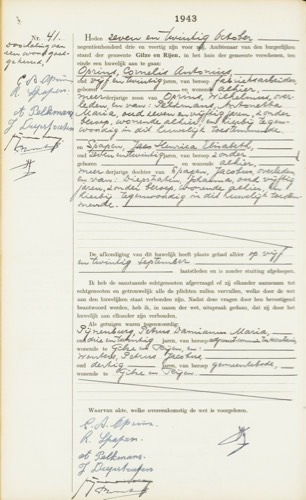 1943
Nr. 41.
Heden zeven en twintig October
negentienhonderd drie en veertig zijn voor mij Ambtenaar van den burgerlijken
stand der gemeente Gilze en Rijen, in het huis der gemeente verschenen, ten
einde een huwelijk aan te gaan:
Oprins, Cornelis Antonius,
oud vijf en twintig jaren, van beroep fabrieksarbeider
geboren te en wonende te alhier,
meerderjarige zoon van Oprins, Wilhelmus, over-
leden, en van: Pelkmans, Antonetta
Maria, oud zeven en vijftig jaren, zonder
beroep, wonende alhier, en hierbij tegen-
woordig in dit huwelijk toestemmende
en Spapen, Henrica Elisabeth,
oud zeven en twintig jaren, van beroep zonder
geboren te en wonende te alhier,
meerderjarige dochter van Spapen, Jacobus, overleden
en van: Johanna, oud vijftig
jaren, zonder beroep, wonende alhier, en
hierbij tegenwoordig en dit huwelijk toestem-
mende.
De afkondiging van dit huwelijk heeft plaats gehad alhier op vijf
en twintig september
laatstleden en is zonder stuiting afgeloopen.
Ik heb de aanstaande echtgenooten afgevraagd of zij elkander aannemen tot
echtgenooten en getrouwelijk alle de plichten zullen vervullen, welke door de wet
aan den huwelijken staat verbonden zijn. Nadat deze vragen door hen bevestigend
beantwoord werden, heb ik, in naam der wet, uitspraak gedaan, dat zij door het
huwelijk aan elkander zijn verbonden.
Als getuigen waren tegenwoordig:
Pijnenburg, Petrus Damianus Maria,
oud drie en twintig jaren, van beroep
wonende te Gilze en Rijen, en:
Wouters, Petrus Jacobus
oud dertig jaren, van beroep gemeentebode,
wonende te Gilze en Rijen.
Waarvan akte, welke overeenkomstig de wet is voorgelezen.
C. A. Oprins
H. Spapen.
A Pelkmans.